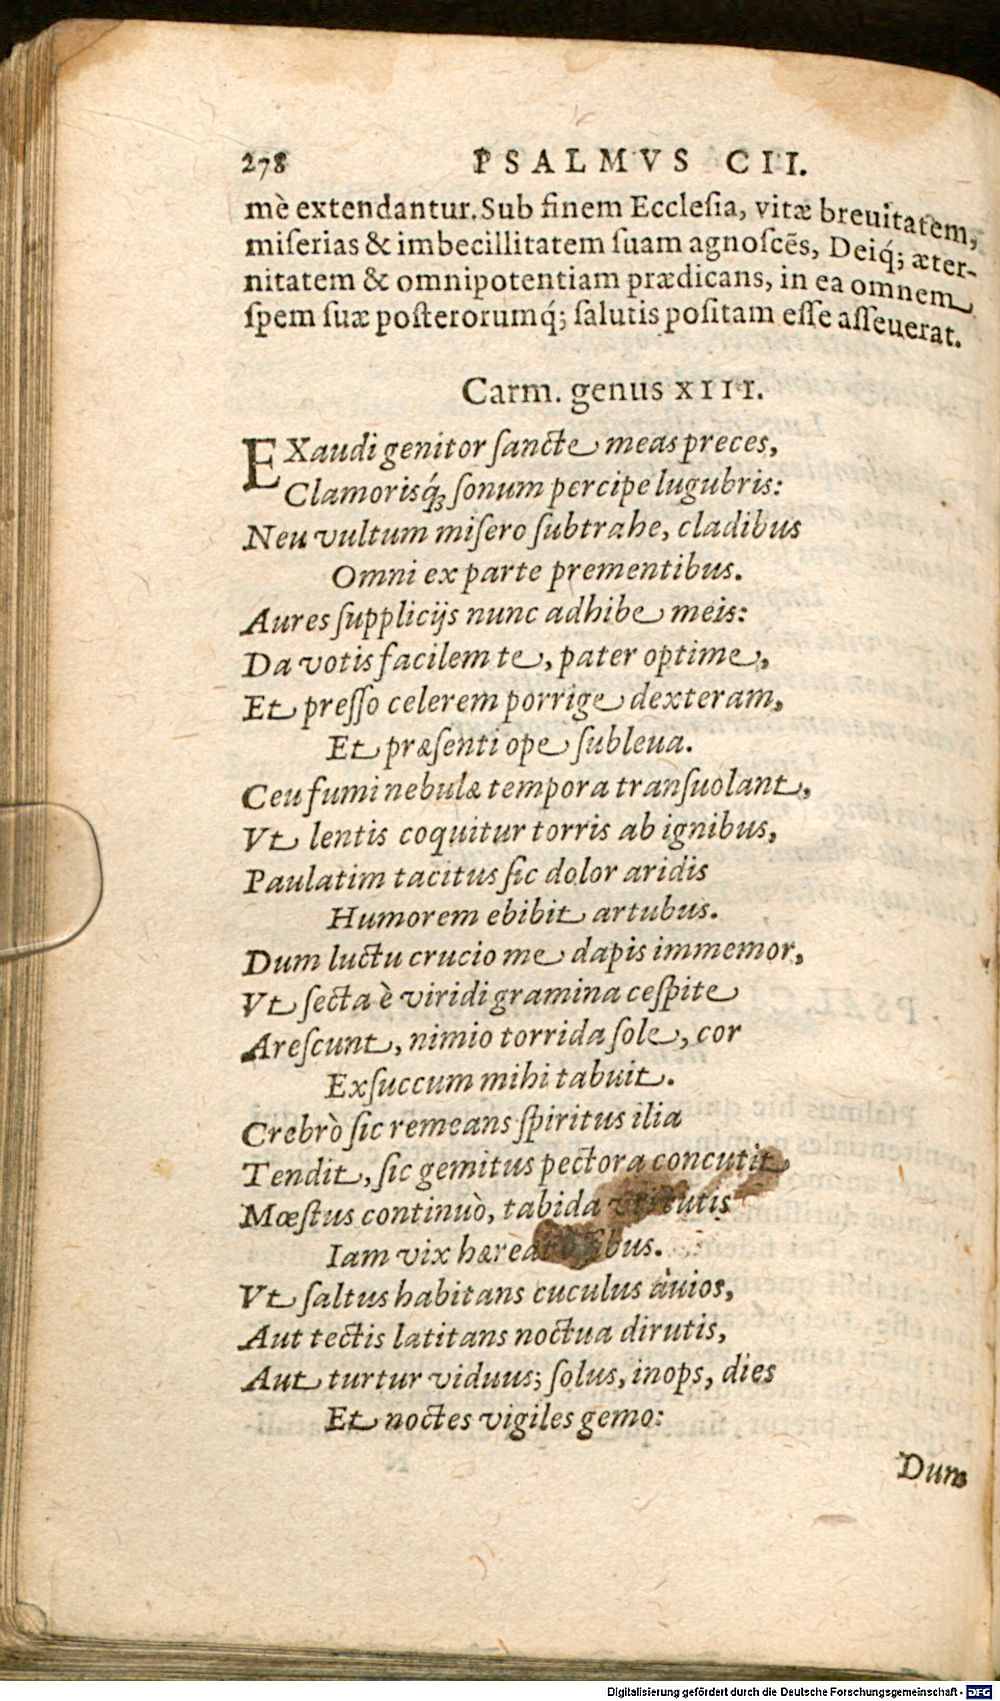 278 PSALMVS CII.
mè extendantur. Sub finem Ecclesia, vitæ breuitatem,
miserias & imbecillitatem suam agnoscẽs, Deiq́; æter-
nitatem & omnipotentiam prædicans, in ea omnem
spem suæ posterorumq́; salutis positam esse asseuerat.
Carm. genus XIII.
EXaudi genitor sancte meas preces,
Clamorisq́; sonum percipe lugubris:
Neu vultum misero subtrahe, cladibus
Omni ex parte prementibus.
Aures supplicijs nunc adhibe meis:
Da votis facilem te, pater optime,
Et presso celerem porrige dexteram,
Et præsenti ope subleua.
Ceu fumi nebulæ tempora transuolant,
Vt lentis coquitur torris ab ignibus,
Paulatim tacitus sic dolor aridis
Humorem ebibit artubus.
Dum luctu crucio me dapis immemor,
Vt secta è viridi gramina cespite
Arescunt, nimio torrida sole, cor
Exsuccum mihi tabuit.
Crebrò sic remeans spiritus ilia
Tendit, sic gemitus pectora concutit
Mœstus continuò, tabida vt cutis
Iam vix hæreat ossibus.
Vt saltus habitans cuculus àuios,
Aut tectis latitans noctua dirutis,
Aut turtur viduus; solus, inops, dies
Et noctes vigiles gemo:
Dum
Digitalisierung gefördert durch die Deutsche Forschungsgemeinschaft - DFG